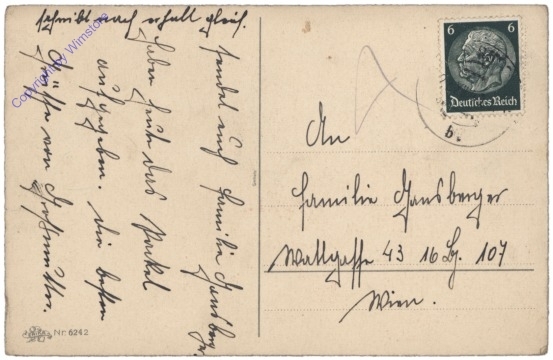 schreibt nach erhalt gleich.
sendet euch Familie Gansberger.
Haben heute das Packel
aufgegeben. Die besten
Grüsse von Großmutter.
Copyright by Wimstore
6 6
Deutsches Reich
b
An
Familie Gansberger
Wattgasse 43 16 Bz. 107
Wien.
Nr. 6242